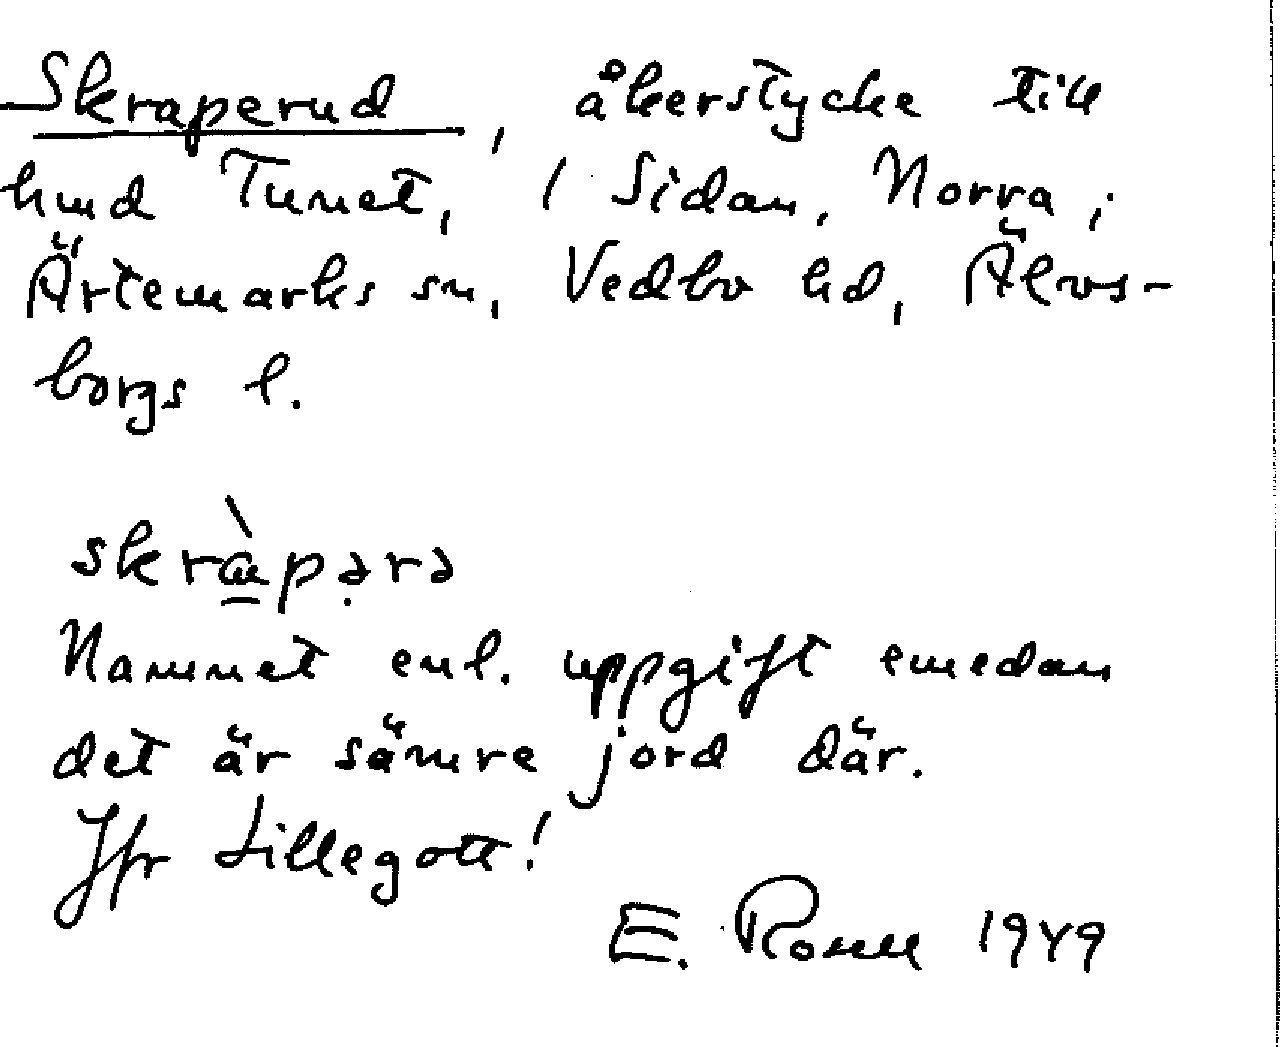 Skraperud, åkerstycke till
hmd Tunet, 1 Sidan, Norra,
Ärtemarks sn, Vedbo hd, Älvs-
borgs l.
skrὰpərə
Namnet enl. uppgift emedan
det är sämre jord där.
Jfr Lillegott!
E. Rosell 1949